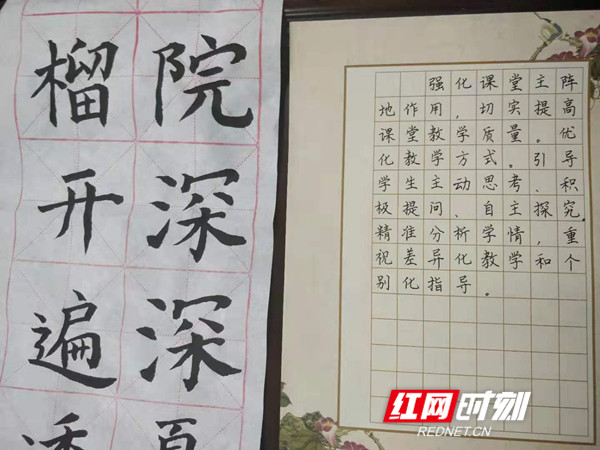 院深深
榴开遍
强化课堂主阵
地作用,切实提高
课堂教学质量。优
化教学方式。引导
学生主动思考、积
极提问、自主探究.
精准分析学情,重
视差异化教学和个
别化指导。
红网时刻
REDNET.CN